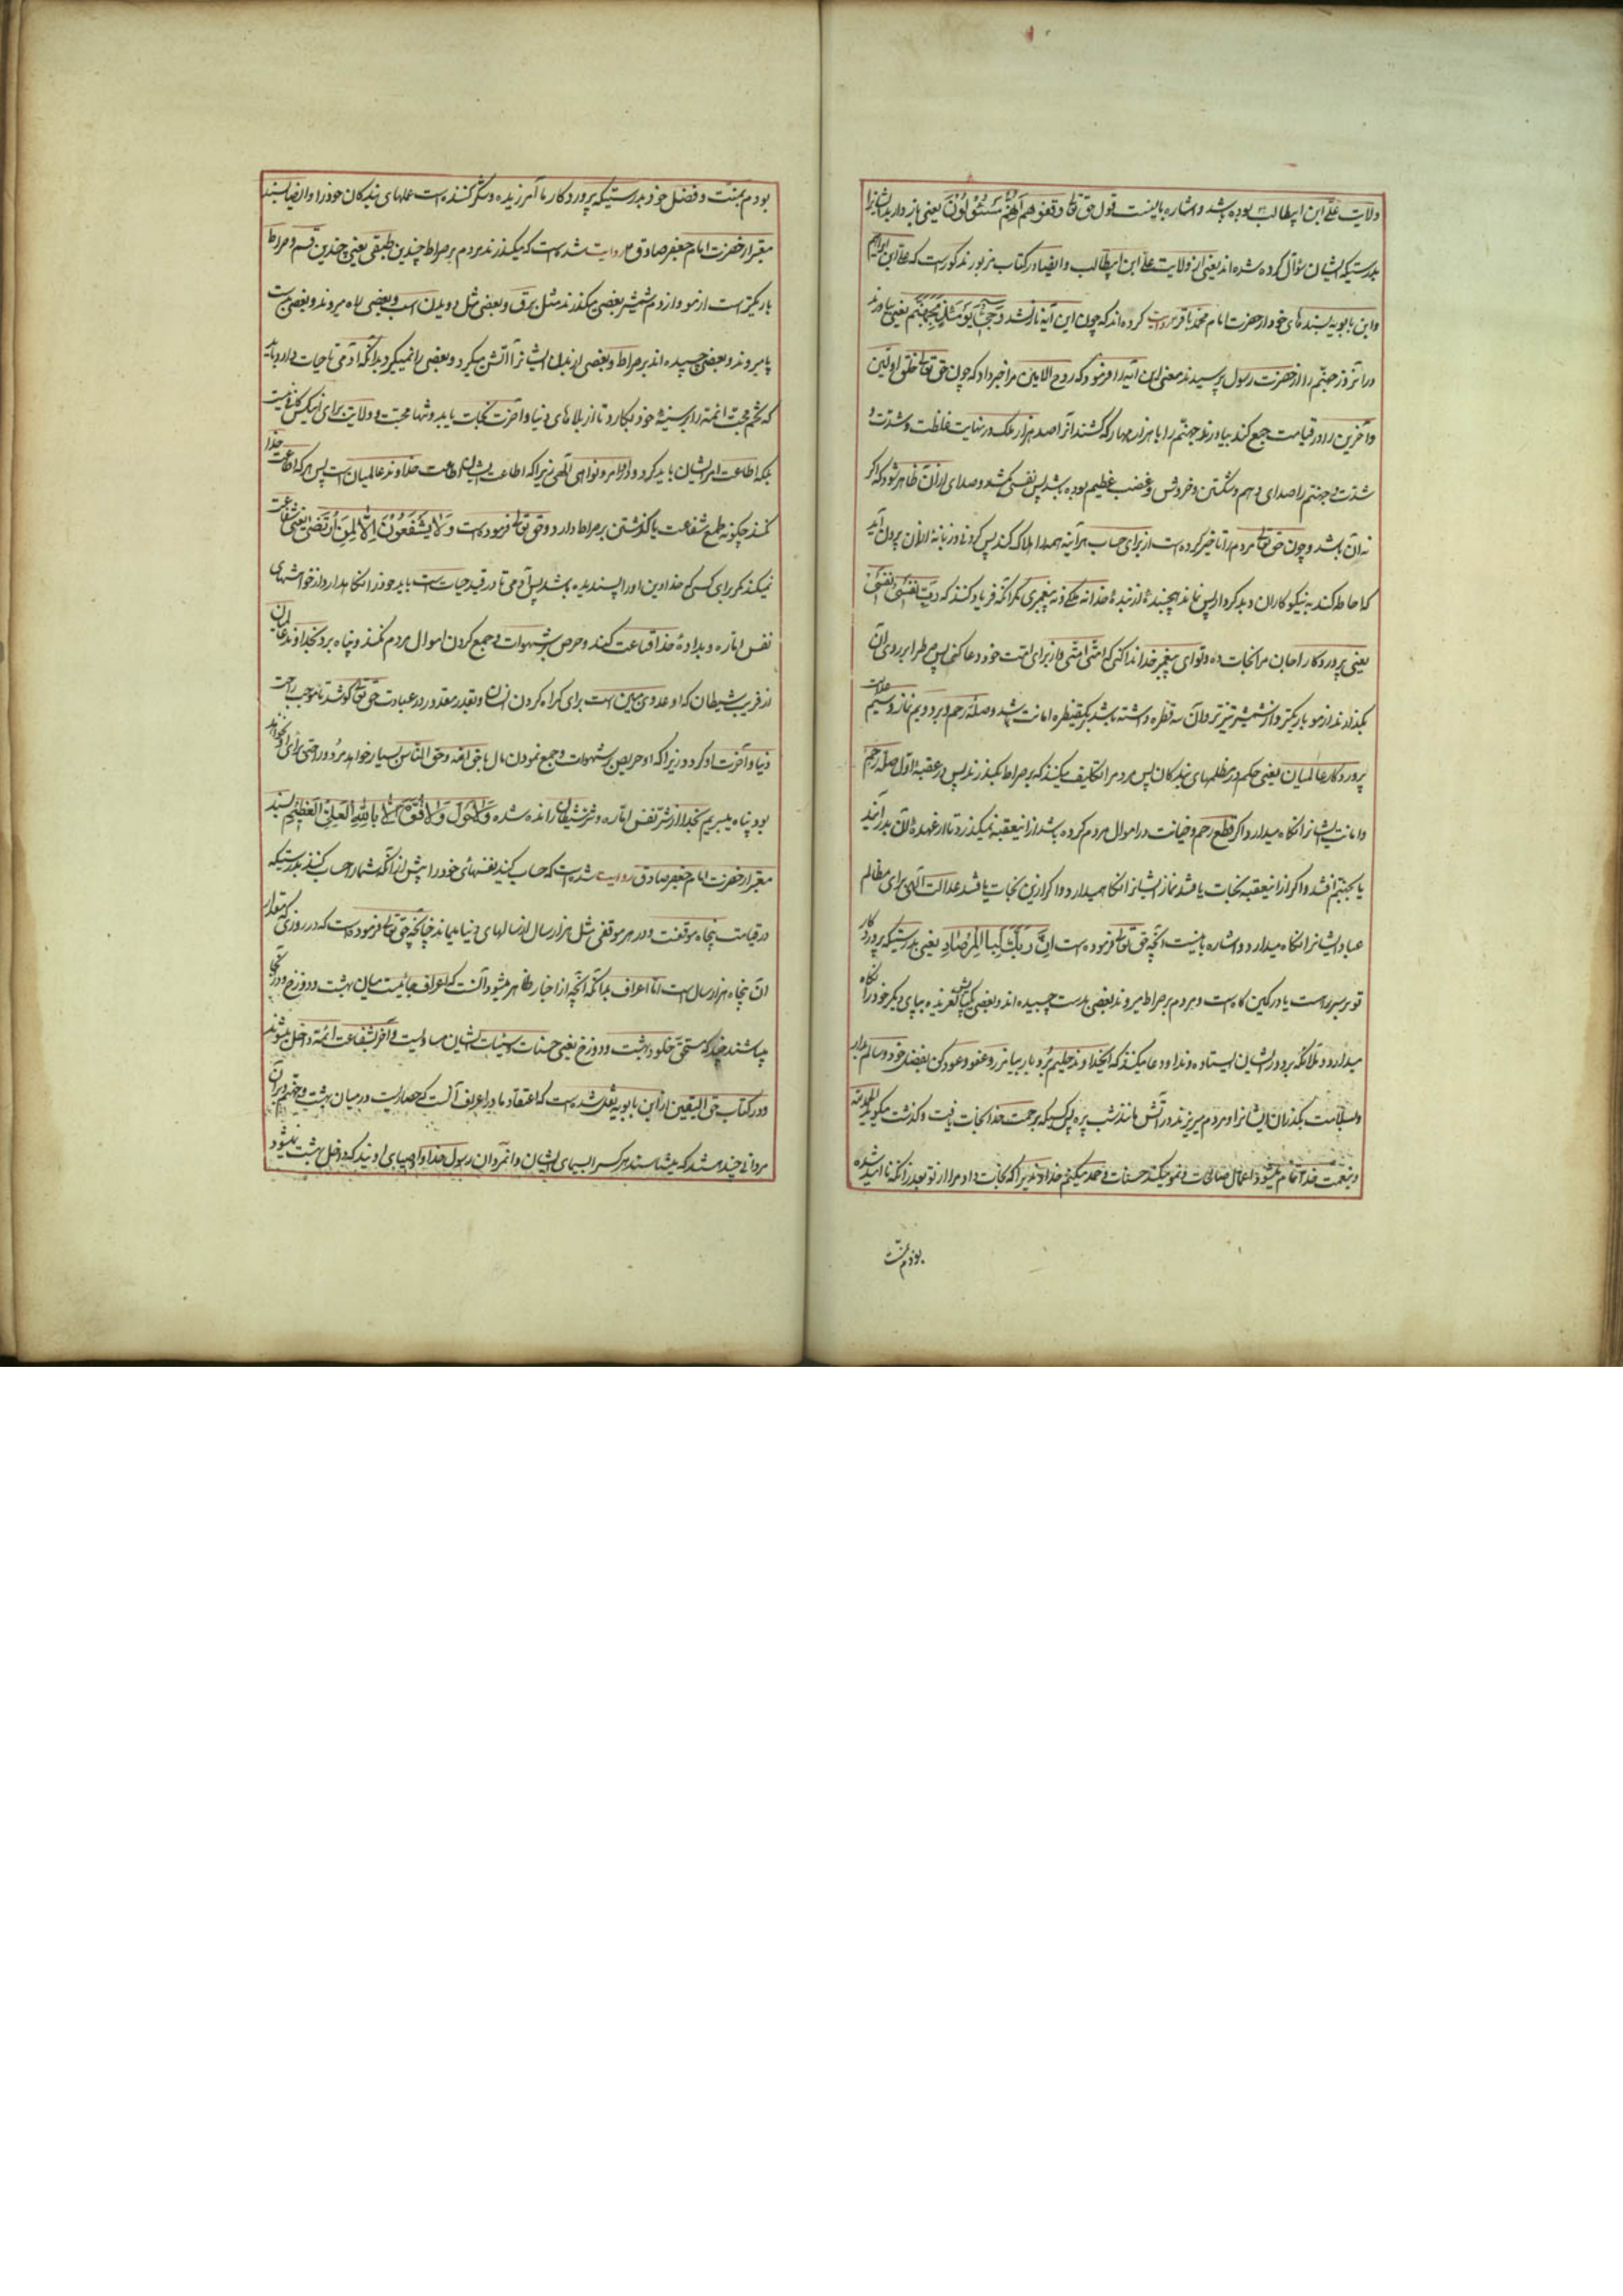 ولایت علی ابن ابیطالب بوده باشد و اشاره باینست قول حق تعالی وقفوهم انهم مسئولون یعنی باز دارید ایشانرا
بدرستیکه ایشان سؤال کرده شده اند یعنی از ولایت علی ابن ابیطالب و ایضا در کتاب مزبور مذکور است که علی ابن ابراهیم
و ابن بابویه بسندهای خود از حضرت امام محمد باقر روایت کرده اند که چون این آیه نازل شد وجیء یومئذ بجهنم یعنی بیاورند
در آنروز جهنم را از حضرت رسول پرسیدند معنی این آیه را فرمود که روح الامین مرا خبر داد که چون حق تعالی خلق اولین
و آخرین را در قیامت جمع کند بیاورند جهنم را با هزار مهار که کشند آنرا صد هزار ملک در نهایت غلظت و شدت و
شدت و جهنم را صدای درهم شکستن و خروش و غضب عظیم بوده باشد پس نفسی کشد و صدای از آن ظاهر شود که اگر
نه آن باشد و چون حق تعالی مردم را تاخیر کرده است از برای حساب هر آینه همه را هلاک کند پس کردنی و زبانه از آن بیرون آید
که احاطه کند به نیکوکاران و بدکرداران پس نماند هیچ بندۀ از بندۀ خدا نه ملکی و نه پیغمبری مگر آنکه فریاد کند که رب نفسی نفسی
یعنی پروردگارا جان مرا نجات ده و تو ای پیغمبر خدا ندا کنی که امتی امتی و از برای امت خود دعا کنی پس صراط را بر روی آن
بگذارند از مو باریکتر و از شمشیر تیزتر و آن سه قنطره داشته باشد یکقنطره امانت باشد وصله رحم و بر دویم نماز و سیم عدالت
پروردگار عالمیان یعنی حکم در مظلمهای بندگان پس مردم را تکلیف میکنند که بر صراط بگذرند پس در عقبه اول صله رحم
و امانت ایشانرا نگاه میدارد و اگر قطع رحم و خیانت در اموال مردم کرده باشد از این عقبه نمیگذرد تا از عهدۀ آن بدر آید
یا بجهنم افتد و اگر از این عقبه نجات یافتند نماز ایشانرا نگاه میدارد و اگر از این نجات یافتند عدالت الهی برای مظالم
عباد ایشانرا نگاه میدارد و اشاره باینست آنچه حق تعالی فرموده است ان ربک لبالمرصاد یعنی بدرستیکه پروردگار
تو بر سر راه است یا در کمین گاه است و مردم بر صراط میروند بعضی بدست چسبیده اند و بعضی یکپاش لغزیده بپای دیگر خود را نگاه
میدارد و ملائکه بر دور ایشان ایستاده و ندا و دعا میکنند که ایخداوند حلیم بردبار بیامرز و عفو و عود کن بفضل خود و سالم بدار
و بسلامت بگذران ایشانرا و مردم میریزند در آتش مانند شب پره پس کسیکه برحمت خدا نجات یافت و گذشت میگوید الحمدلله
و بنعمت خدا تمام میشود اعمال صالحات و نمو میکند حسنات و حمد میکنم خداوندیرا که نجات داد مرا از تو بعد از آنکه ناامید شده
بودم بمنت
بودم بمنت و فضل خود بدرستیکه پروردگار ما آمرزنده و شکر کننده است عملهای بندگان خود را و ایضا بسند
معتبر از حضرت امام جعفر صادق ع روایت شده است که میگذرند مردم بر صراط چندین طبقی یعنی چندین قسم و صراط
باریکتر است از مو و از دم شمشیر بعضی میگذرند مثل برق و بعضی مثل دویدن اسب و بعضی راه میروند و بعضی بدست
پا میروند و بعضی چسپیده اند بر صراط و بعضی از بدن ایشانرا آتش میگیرد و بعضی را نمیگیرد بدانکه آدمی تا حیات دارد باید
که تخم محبت ائمه را در سینۀ خود بکارد تا از بلاهای دنیا و آخرت نجات یابد و تنها محبت و ولایت برای اینکس کافی نیست
بلکه اطاعت امر ایشان باید کرد در اوامر و نواهی الهی زیرا که اطاعت ایشان اطاعت خداوند عالمیان است پس هر که اطاعت خدا
نکند چگونه طمع شفاعت یا گذشتن بر صراط دارد و حق تعالی فرموده است ولا یشفعون الا لمن ارتضی یعنی شفاعت
نمیکنند مگر برای کسی که خدا دین او را پسندیده باشد پس آدمی تا در قید حیات است باید خود را نگاه بدارد از خواهشهای
نفس اماره و بدادۀ خدا قناعت کند و حرص بر شهوات و جمع کردن اموال مردم نکند و پناه برد بخداوند عالمیان
از فریب شیطان که او عدوی مبین است برای گمراه کردن انسان و بقدر مقدور در عبادت حق تعالی کوشد تا موجب راحت
دنیا و آخرت او گردد زیرا که او حریص بر شهوات و جمع نمودن مال یا حق الله و حق الناس بسیار خواهد مرد و راحتی برای او نخواهد
بود و پناه میبریم بخدا از شر نفس اماره و شر شیطان رانده شده ولا حول ولا قوة الا بالله العلی العظیم بسند
معتبر از حضرت امام جعفر صادق روایت شده است که حساب کنید نفسهای خود را پیش از آنکه شما را حساب کنند بدرستیکه
در قیامت پنجاه موقفست و در هر موقفی مثل هزار سال از سالهای دنیا میماند چنانچه حق تعالی فرموده است که در روزی که مقدار
آن پنجاه هزار سال است اما اعراف بدانکه آنچه از اخبار ظاهر میشود آنست که اعراف جائیست میان بهشت و دوزخ و در آنجا
میباشند چند که مستحق خلود بهشت و دوزخ یعنی حسنات و سیئات ایشان مساویست و آخر بشفاعت ائمه داخل میشوند
و در کتاب حق الیقین از ابن بابویه نقل شده است که اعتقاد ما در اعراف آنست که حصاریست در میان بهشت و جهنم و بر آن
مردانی چند هستند که میشناسند هر کس را بسیمای ایشان و آنمردان رسول خدا و اوصیای اویند که داخل بهشت نمیشود